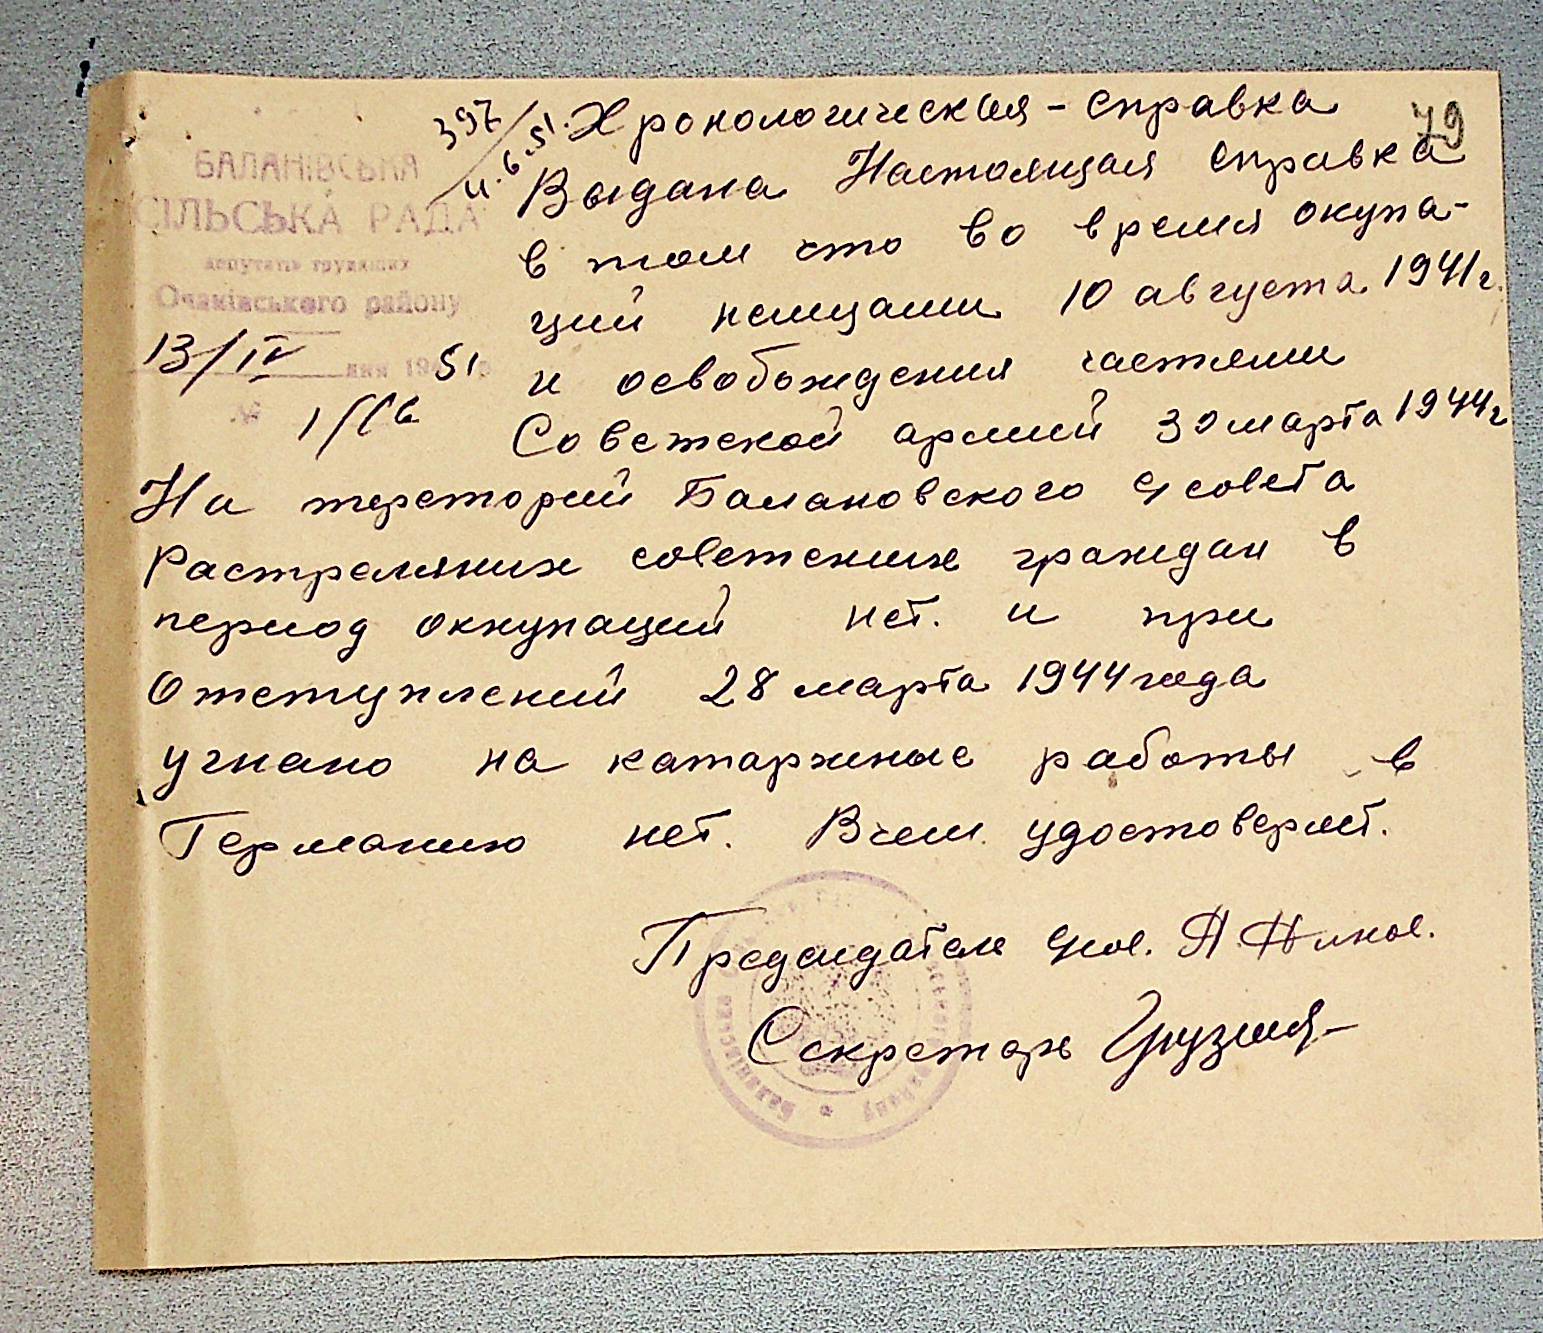 397
79
Хронологическая - справка
БАЛАНІВСЬКА
Выдана Настоящая справка
СІЛЬСЬКА РАДА
в том что во время окупа-
депутатів трудящих
Очаківського району
ций немцами 10 августа 1941 г.
13/IV дня 1951 р
и освобождения частями
№ 1/16
Советской армий 30 марта 1944 г
На тереторий Балановского с/совета
Растреляних советских граждан в
период оккупаций нет. и при
Отступлений 28 марта 1944 года
угнано на катаржные работы в
Германию нет. В чем удостоверяет.
Председатель
Секретарь